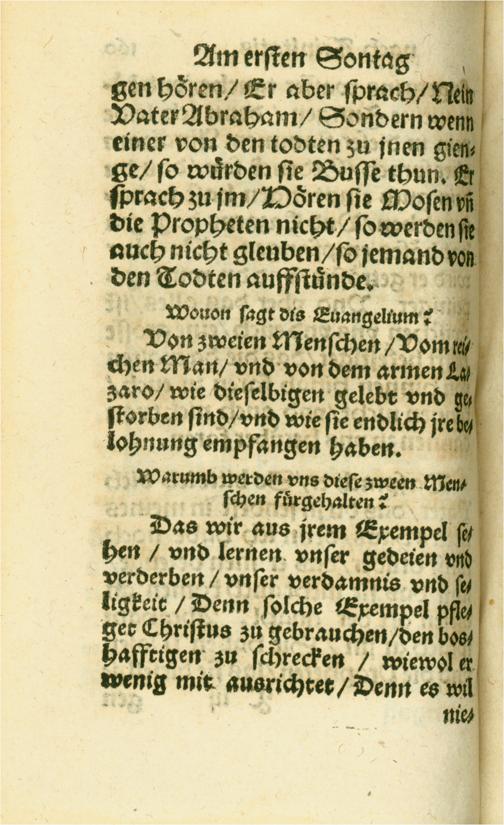 Am ersten Sontag
gen hören/ Er aber sprach/ Nein
Vater Abraham/ Sondern wenn
einer von den todten zu jnen gien-
ge/ so würden sie Busse thun. Er
sprach zu jm/ Hören sie Mosen vñ
die Propheten nicht/ so werden sie
auch nicht gleuben/ so jemand von
den Todten auffstünde.
Wouon sagt dis Euangelium?
Von zweien Menschen/ Vom rei-
chen Man/ vnd von dem armen La-
zaro/ wie dieselbigen gelebt vnd ge-
storben sind/ vnd wie sie endlich jre be-
lohnung empfangen haben.
Warumb werden vns diese zween Men-
schen fürgehalten?
Das wir aus jrem Exempel se-
hen/ vnd lernen vnser gedeien vnd
verderben/ vnser verdamnis vnd se-
ligkeit/ Denn solche Exempel pfle-
get Christus zu gebrauchen/ den bos-
hafftigen zu schrecken/ wiewol er
wenig mit ausrichtet/ Denn es wil
nie-